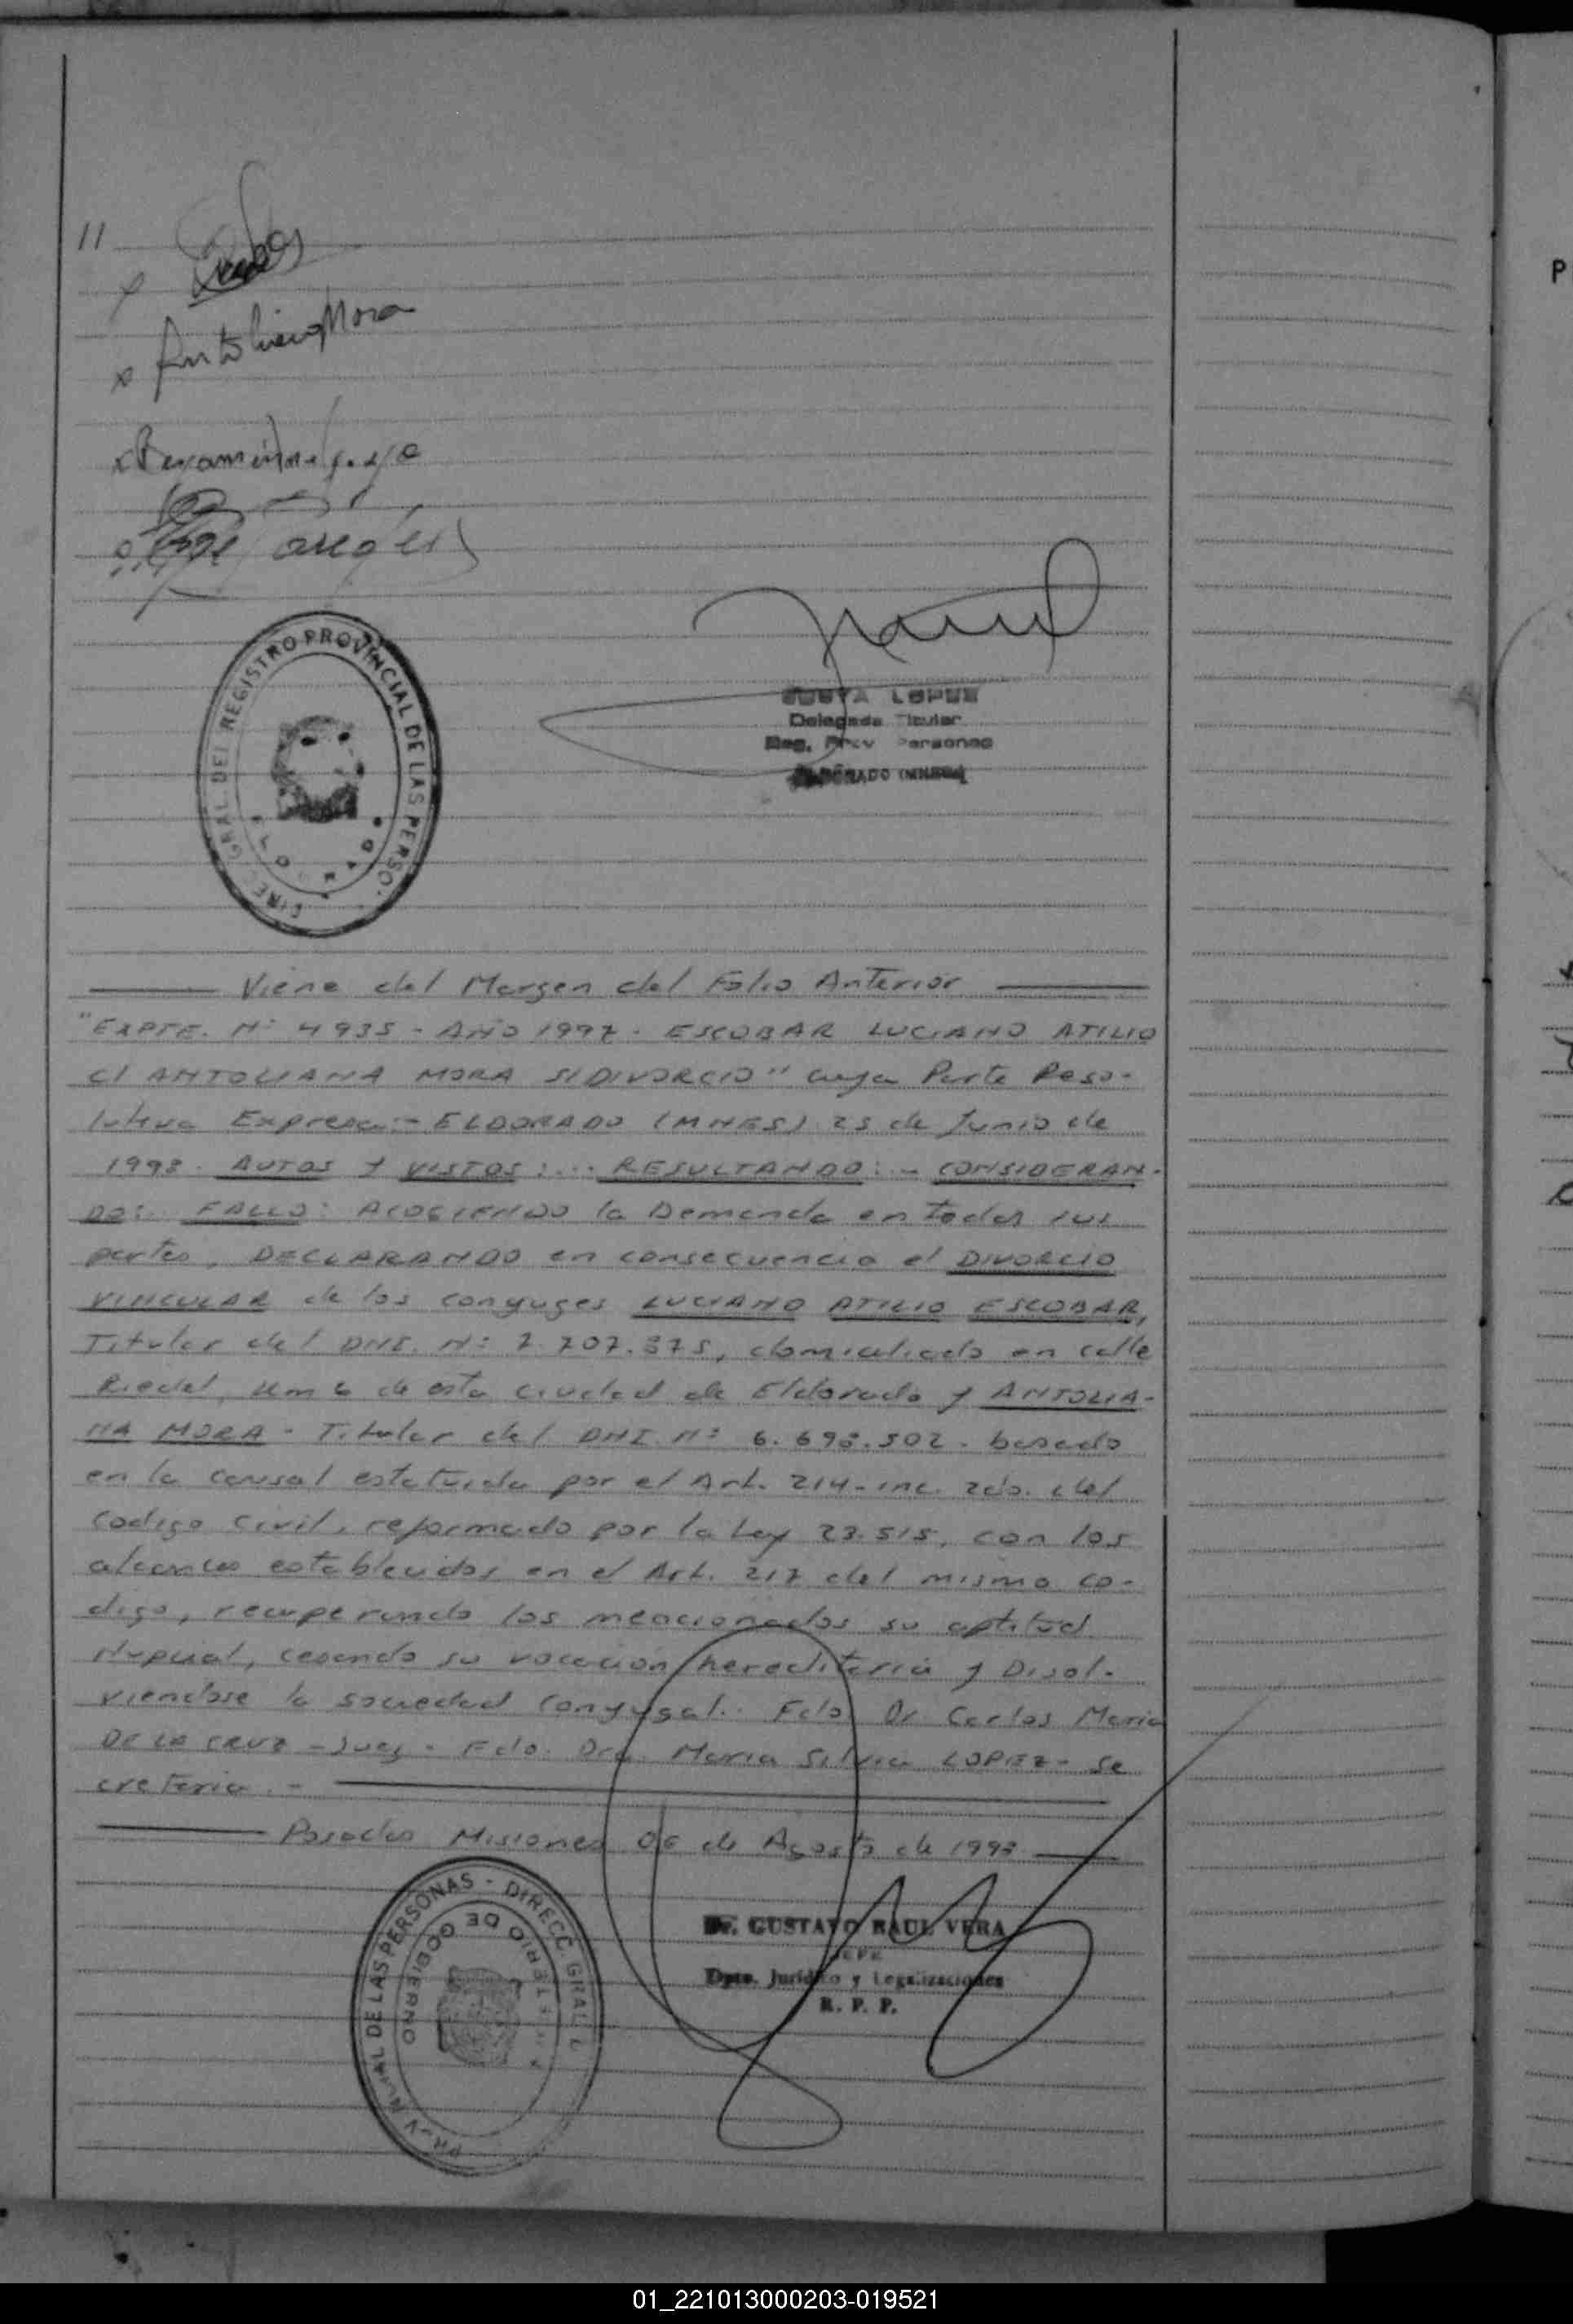 11
x
x Antoliana Mora
x
DIREC. GRAL. DEL REGISTRO PROVINCIAL DE LAS PERSO.
LOPEZ
Delegada Titular
Reg. Prov Personas
Viene del Margen del Folio Anterior
"EXPTE. Nº 4935 - AÑO 1997 - ESCOBAR LUCIANO ATILIO
C/ ANTOLIANA MORA S/DIVORCIO" cuya Parte Reso-
lutiva Expresa:- ELDORADO (MNES) 25 de Junio de
1998. AUTOS Y VISTOS:... RESULTANDO:.- CONSIDERAN-
DO:. FALLO: ACOGIENDO la Demanda en todas sus
partes, DECLARANDO en consecuencia el DIVORCIO
VINCULAR de los conyuges LUCIANO ATILIO ESCOBAR,
Titular del DNI. Nº 7.707.375, domiciliado en calle
Riedel, Km 6 de esta ciudad de Eldorado y ANTOLIA-
NA MORA - Titular del DNI. Nº 6.698.502. basado
en la causal estatuida por el Art. 214 - inc. 2do. del
codigo civil, reformado por la Ley 23.515, con los
alcances establecidos en el Art. 217 del mismo co-
digo, recuperando los mencionados su aptitud
Nupcial, cesando su vocacion hereditaria y Disol-
viendose la sociedad conyugal.. Fdo. Dr. Carlos Maria
DE LA CRUZ - Juez - Fdo. Dra. Maria Silvia LOPEZ - Se
cretaria.-
Posadas Misiones 06 de Agosto de 1998
PROVINCIAL DE LAS PERSONAS - DIRECC. GRAL
DE GOBIERNO
Dr. GUSTAVO RAUL VERA
JEFE
Dpto. Juridico y Legalizaciones
R. P. P.
P
01_221013000203-019521